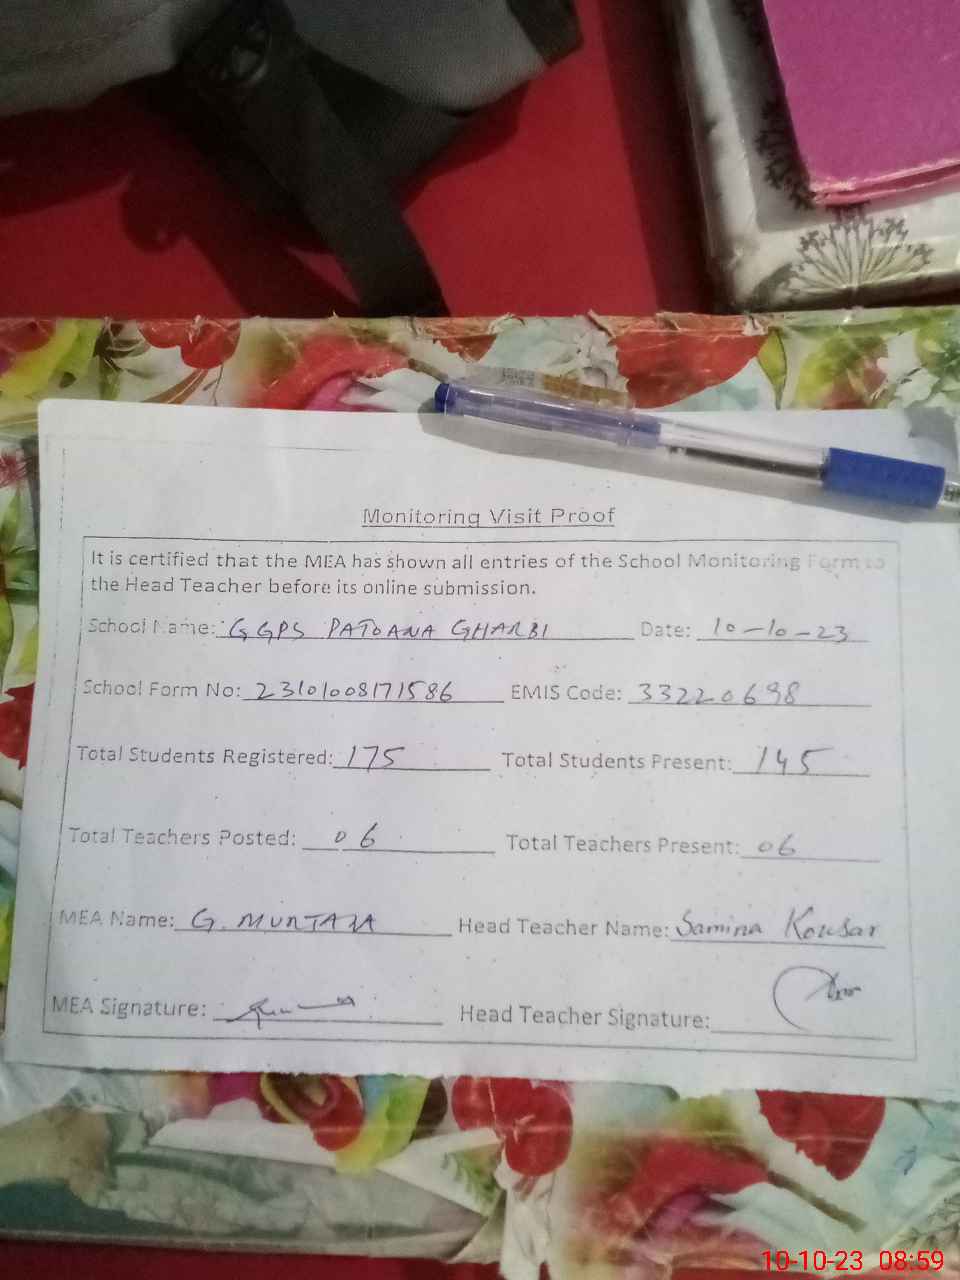 Monitoring Visit Proof
It is certified that the MEA has shown all entries of the School Monitoring Form to
the Head Teacher before its online submission.
School Name: GGPS PATOANA GHARBI Date: 10-10-23
School Form No: 23101008171586 EMIS Code: 33220698
Total Students Registered: 175 Total Students Present: 145
Total Teachers Posted: 06 Total Teachers Present: 06
MEA Name: G. MURTAZA Head Teacher Name: Samina Kousar
MEA Signature: Head Teacher Signature:
10-10-23 08:59